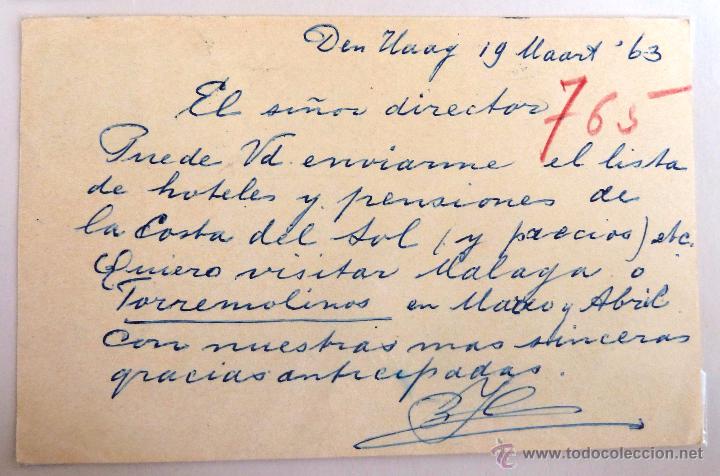 Den Haag 19 Maart '63
El señor director
765
Puede Vd. enviarme el lista
de hoteles y pensiones de
la Costa del Sol (y precios) etc.
Quiero visitar Malaga o
Torremolinos en Marzo y Abril
Con nuestras mas sinceras
gracias anticipadas.
© www.todocoleccion.net